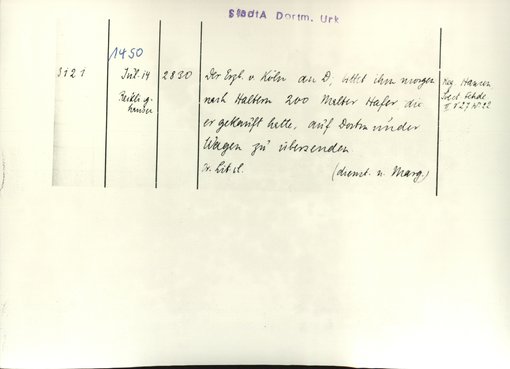 StadtA Dortm. Urk
1450
3121
Juli 14
2830
Der Erzb. v. Köln an D, bittet ihm morgen
nach Haltern 200 Malter Hafer die
er gekauft hatte, auf Dortmunder
Wagen zu übersenden.
Or. Lit. cl.
(dienst. n. Marg.)
Reg. Hansen
Soest. Fehde